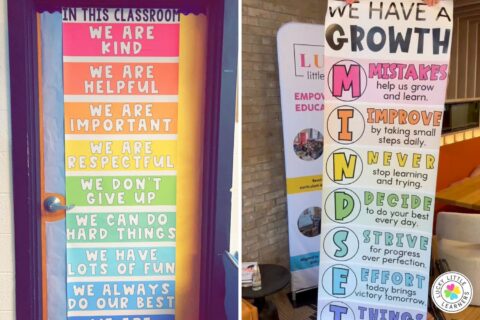 IN THIS CLASSROOM
WE ARE
KIND
WE ARE
HELPFUL
WE ARE
IMPORTANT
WE ARE
RESPECTFUL
WE DON'T
GIVE UP
WE CAN DO
HARD THINGS
WE HAVE
LOTS OF FUN
WE ALWAYS
DO OUR BEST
WE ARE
WE HAVE A
GROWTH
M MISTAKES
help us grow
and learn.
I IMPROVE
by taking small
steps daily.
N NEVER
stop learning
and trying.
D DECIDE
to do your best
every day.
S STRIVE
for progress
over perfection.
E EFFORT
today brings
victory tomorrow.
T THINGS
LU
little
EMPOW
EDUCA
LUCKY LITTLE
LEARNERS